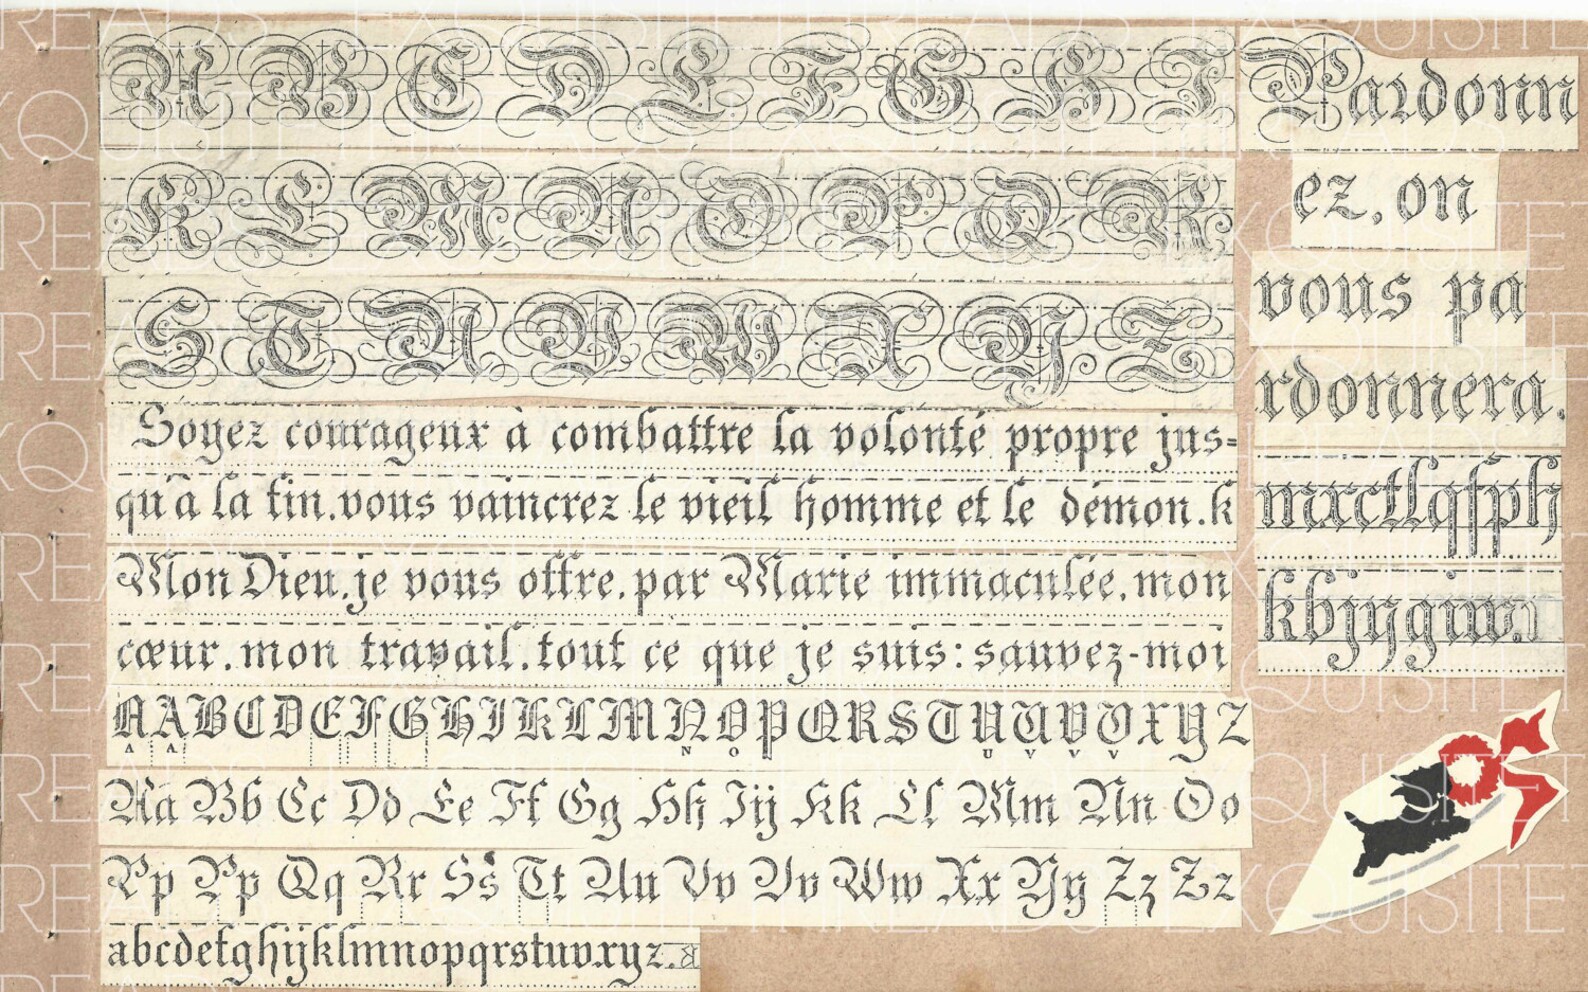 A B C D E F G H I
K L M N O P Q R
S T U V W X Y Z
Soyez courageux à combattre la volonté propre jus=
qu'à la fin.vous vaincrez le vieil homme et le démon.k
Mon Dieu,je vous offre,par Marie immaculée,mon
cœur,mon travail,tout ce que je suis:sauvez-moi
AABCDEFGHIKLMNOPQRSTUUVVXYZ
A A N O U V V V
Aa Bb Cc Dd Ee Ff Gg Hh Iij Kk Ll Mm Nn Oo
Pp Pp Qq Rr Ss Tt Uu Vv Vv Ww Xx Yy Zz Zz
abcdefghijklmnopqrstuvxyz.
Pardonn
ez,on
vous pa
rdonnera.
mxctlqfph
kbjygiw.
EXQUISITE THREADS